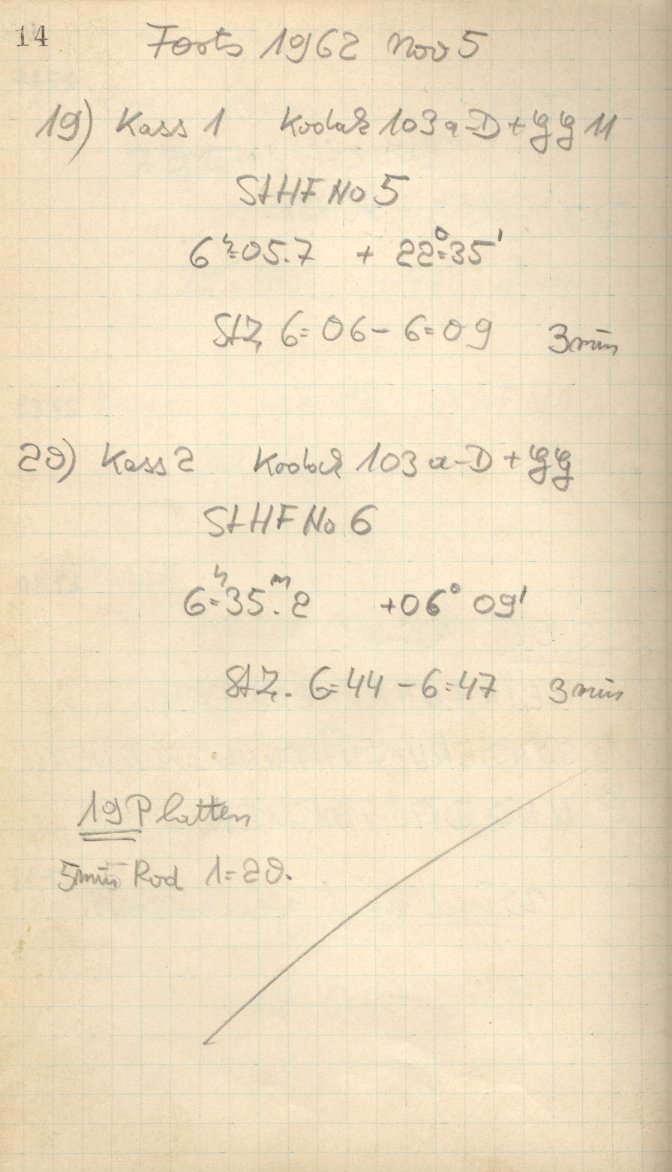 14
Forts 1962 Nov 5
19) Kass 1 Kodak 103 a-D + GG 11
StHF No 5
6h=05.7 + 22°=35'
StZ 6=06 - 6=09 3min
20) Kass 2 Kodak 103 a-D + GG
StHF No 6
6h=35m.2 +06° 09'
StZ. 6=44 - 6=47 3min
19 Platten
5min Rod 1=20.